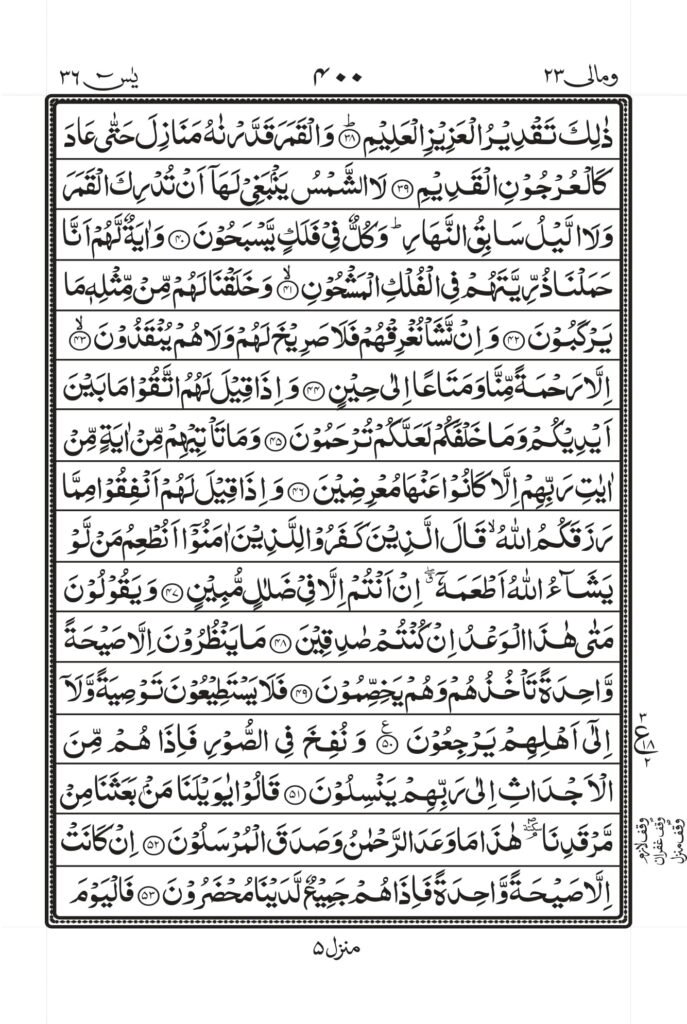 ومالی ۲۳ ۴۰۰ یٰسٓ ۳۶
ذٰلِكَ تَقْدِيْرُ الْعَزِيْزِ الْعَلِيْمِ ؕ﴿۳۸﴾ وَالْقَمَرَ قَدَّرْنٰهُ مَنَازِلَ حَتّٰى عَادَ
كَالْعُرْجُوْنِ الْقَدِيْمِ ﴿۳۹﴾ لَا الشَّمْسُ يَنْۢبَغِيْ لَهَاۤ اَنْ تُدْرِكَ الْقَمَرَ
وَلَا الَّيْلُ سَابِقُ النَّهَارِ ؕ وَكُلٌّ فِيْ فَلَكٍ يَّسْبَحُوْنَ ﴿۴۰﴾ وَاٰيَةٌ لَّهُمْ اَنَّا
حَمَلْنَا ذُرِّيَّتَهُمْ فِي الْفُلْكِ الْمَشْحُوْنِ ۙ﴿۴۱﴾ وَخَلَقْنَا لَهُمْ مِّنْ مِّثْلِهٖ مَا
يَرْكَبُوْنَ ﴿۴۲﴾ وَاِنْ نَّشَاْ نُغْرِقْهُمْ فَلَا صَرِيْخَ لَهُمْ وَلَا هُمْ يُنْقَذُوْنَ ۙ﴿۴۳﴾
اِلَّا رَحْمَةً مِّنَّا وَمَتَاعًا اِلٰى حِيْنٍ ﴿۴۴﴾ وَاِذَا قِيْلَ لَهُمُ اتَّقُوْا مَا بَيْنَ
اَيْدِيْكُمْ وَمَا خَلْفَكُمْ لَعَلَّكُمْ تُرْحَمُوْنَ ﴿۴۵﴾ وَمَا تَاْتِيْهِمْ مِّنْ اٰيَةٍ مِّنْ
اٰيٰتِ رَبِّهِمْ اِلَّا كَانُوْا عَنْهَا مُعْرِضِيْنَ ﴿۴۶﴾ وَاِذَا قِيْلَ لَهُمْ اَنْفِقُوْا مِمَّا
رَزَقَكُمُ اللّٰهُ ۙ قَالَ الَّذِيْنَ كَفَرُوْا لِلَّذِيْنَ اٰمَنُوْۤا اَنُطْعِمُ مَنْ لَّوْ
يَشَآءُ اللّٰهُ اَطْعَمَهٗۤ ۖ اِنْ اَنْتُمْ اِلَّا فِيْ ضَلٰلٍ مُّبِيْنٍ ﴿۴۷﴾ وَيَقُوْلُوْنَ
مَتٰى هٰذَا الْوَعْدُ اِنْ كُنْتُمْ صٰدِقِيْنَ ﴿۴۸﴾ مَا يَنْظُرُوْنَ اِلَّا صَيْحَةً
وَّاحِدَةً تَاْخُذُهُمْ وَهُمْ يَخِصِّمُوْنَ ﴿۴۹﴾ فَلَا يَسْتَطِيْعُوْنَ تَوْصِيَةً وَّلَاۤ
اِلٰۤى اَهْلِهِمْ يَرْجِعُوْنَ ﴿۵۰﴾ ع وَنُفِخَ فِي الصُّوْرِ فَاِذَا هُمْ مِّنَ
الْاَجْدَاثِ اِلٰى رَبِّهِمْ يَنْسِلُوْنَ ﴿۵۱﴾ قَالُوْا يٰوَيْلَنَا مَنْۢ بَعَثَنَا مِنْ
مَّرْقَدِنَا هٰذَا مَا وَعَدَ الرَّحْمٰنُ وَصَدَقَ الْمُرْسَلُوْنَ ﴿۵۲﴾ اِنْ كَانَتْ
اِلَّا صَيْحَةً وَّاحِدَةً فَاِذَا هُمْ جَمِيْعٌ لَّدَيْنَا مُحْضَرُوْنَ ﴿۵۳﴾ فَالْيَوْمَ
۳
ع ۱۸
۲
وقف لازم
وقف غفران
وقف منزل
منزل ۵